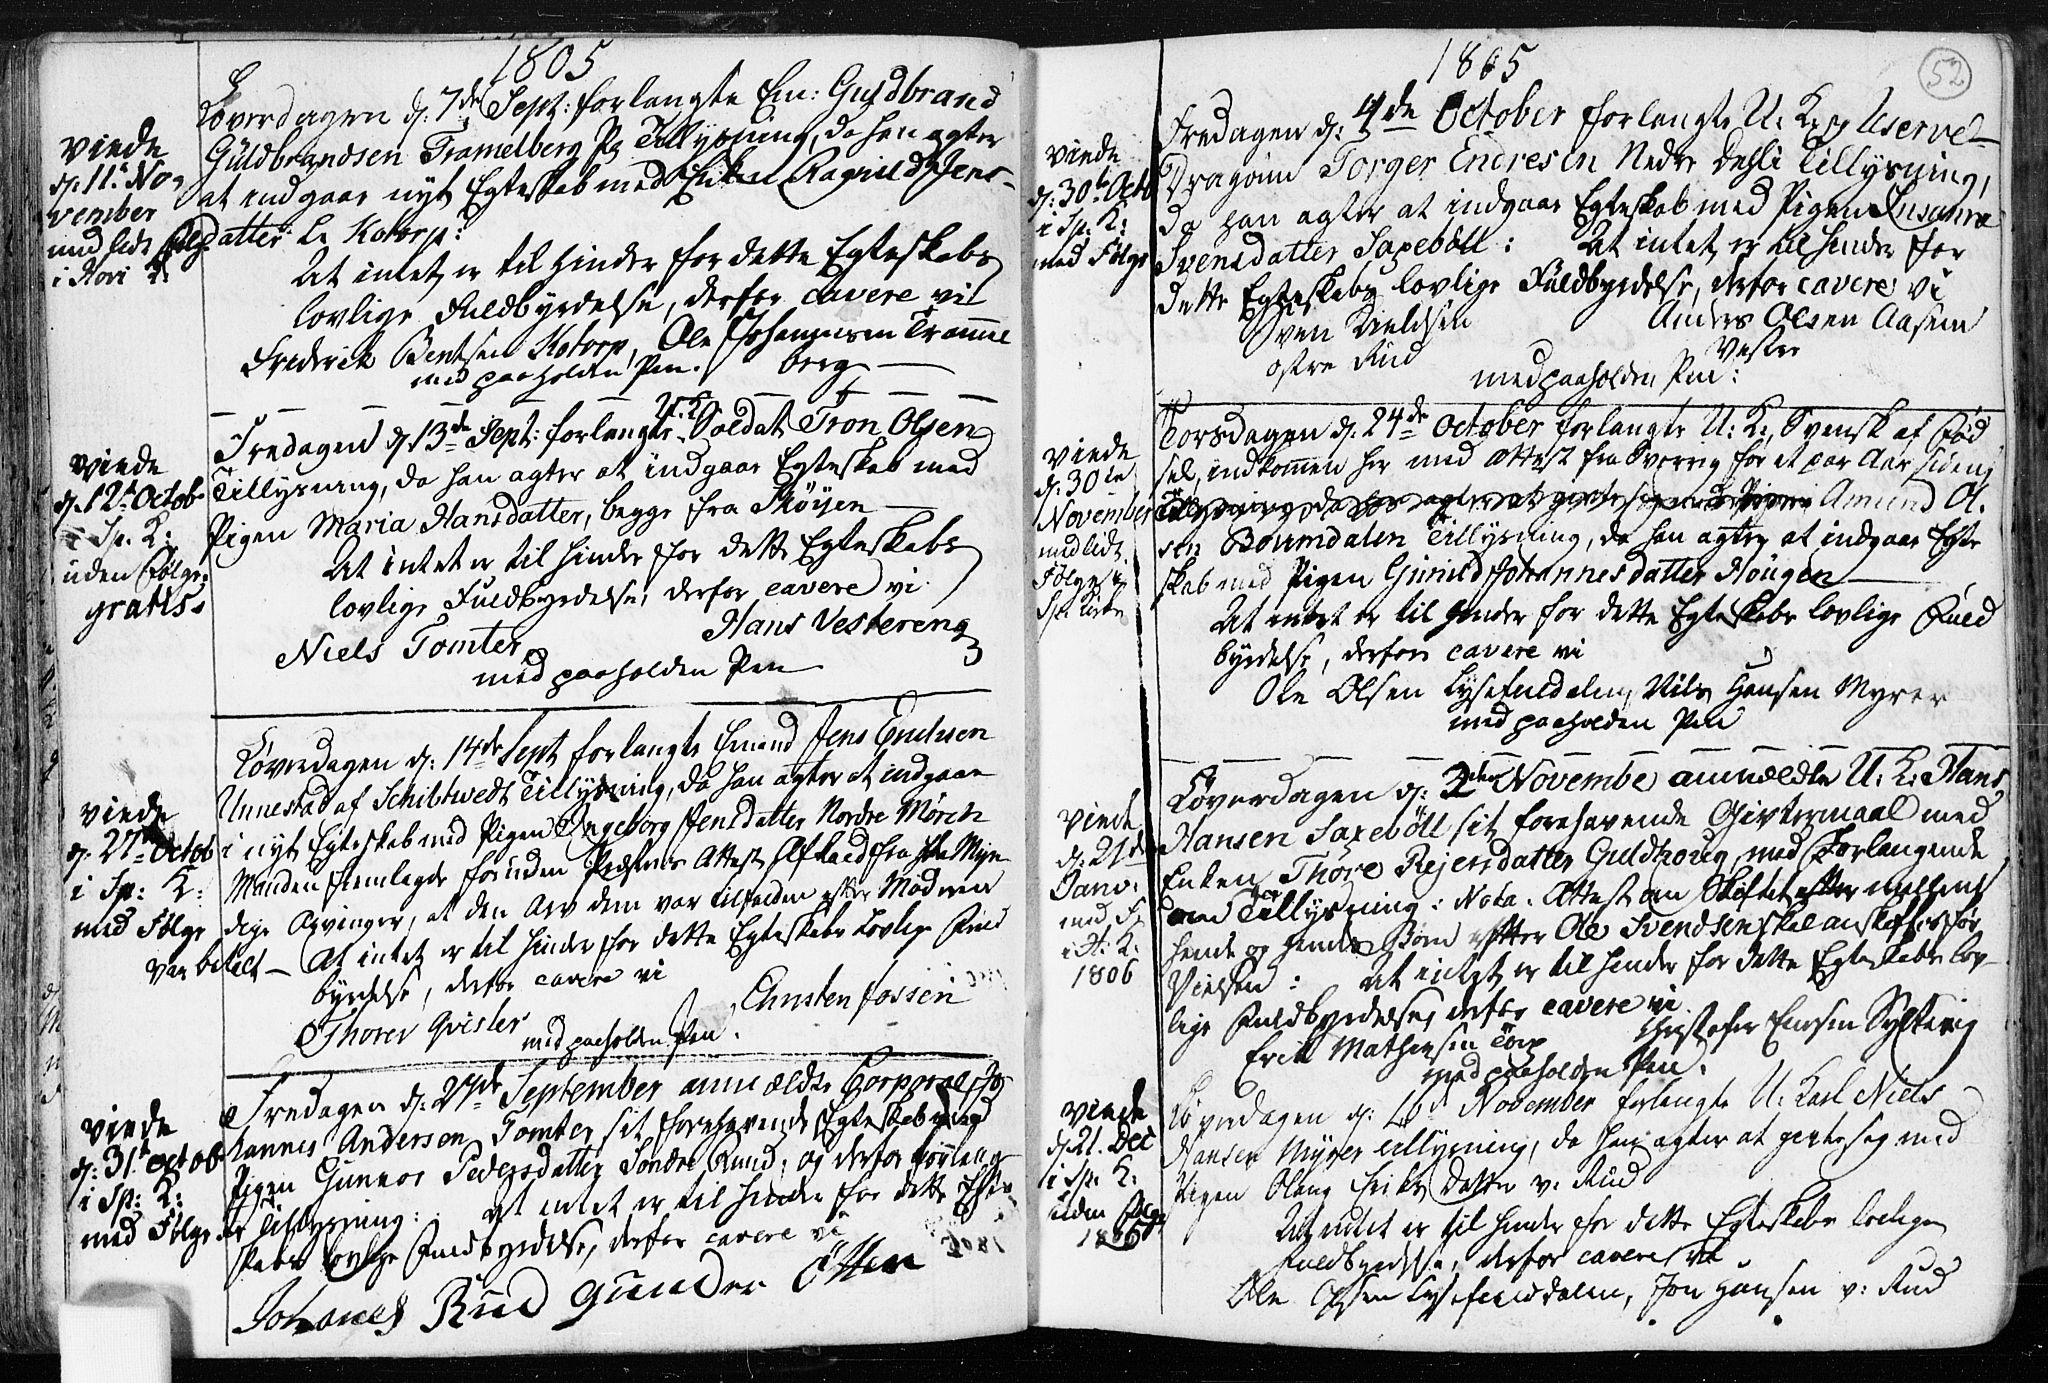 1805
Løverdagen d: 7de Sept: forlangte Em: Guldbrand
Güldbrandsen Tramelberg Tillysning, da han agter
at indgaae nyt Egteskab med Enken Ragnild Jens-
datter L. Kotorp:
At intet er til Hinder for dette Egteskabs
lovlige Fuldbyrdelse, derfor cavere vi
Frederik Bentsen Kotorp, Ole Johannesen Tramme
berg
med paaholden Pen.
viede
d: 11te No-
vember
med lidt Følge
i Hovi K:
Fredagen d 13de Sept: forlangte U. K. Soldat Tron Olsen
Tillysning, da han agter at indgaae Egteskab med
Pigen Maria Hansdatter, begge fra Skøyen
At intet er til Hinder for dette Egteskabs
lovlige Fuldbyrdelse, derfor cavere vi
Niels Tomter Hans Vestereng
med paaholden Pen
viede
d. 12te Octob
i Sp. K:
uden Følge
gratis
Løverdagen d: 14de Sept forlangte Jens
Unnestad af Schibtwedt Tillysning, da han agter at indgaae
i nyt Egteskab med Pigen Ingeborg Jensdatter Nordre Mørch
Manden fremlagde foruden Attest fra Myn
dige Arvinger, at den Arv dem var tilfalden efter Moderen
At intet er til Hinder for dette Egteskabs Lovlige Fuld
byrdelse, derfor cavere vi
Thorer Qvisler Christen Jossen
med paaholden Pen.
viede
d. 27de Octob
i Sp: K:
med Følge
var betalt
Fredagen d: 27de September anmældte Corporal Jo
hannes Andersen Tomter sit forehavende Egteskab med
Pigen Gunnor Pedersdatter Søndre Ruud, og derfor forlang
er Tillysning: At intet er til Hinder for dette Egte-
skabs lovlige Fuldbyrdelse, derfor cavere vi
Johanes Rüd Gunder
viede
d: 31te octob
i Sp: K:
med Følge
1805
52
Fredagen d: 4de October forlangte U: K: og
Dragoun Torger Endresen Nedre Dehli Tillysning,
da han agter at indgaae Egteskab med Pigen
Svensdatter Saxebøll: At intet er til Hinder for
dette Egteskabs lovlige Fuldbyrdelse, derfor cavere vi
Sven Kieldsen Anders Olsen Aasem
østre Rud Vestre
med paaholden Pen:
viede
d: 30te Octb
i Sp. K:
med Følge
Torsdagen d: 24de October forlangte U: K:, Svensk af Fød
sel, indkommen her med Attest fra Sverrig for et par Aar siden,
Amund Ol
sen Boumdalen Tillysning, da han agter at indgaae Egte
skab med Pigen Gunild Johannesdatter Hougen
At intet er til Hinder for dette Egteskabs lovlige Fuld
byrdelse, derfor cavere vi
Ole Olsen Lysefueldalen, Nils Hansen Myrer
med paaholden Pen
viede
d: 30te
November
med lidt
Følge i
Sp: Kirke
Løverdagen d: 2den Novembe anmældte U: K: Hans
Hansen Saxebøll sit forehavende Givtermaal med
Enken Thore Rejersdatter Guldhoug, med Forlangende
om Tillysning: Nota. Attest om Skiftet mellem
hende og hendes Børn efter Ole Svendsen skal anskaffes før
Vielsen: At intet er til hinder for dette Egteskabs lov-
lige Fuldbyrdelse, derfor cavere vi
Erik Mathiesen Torp Christofer
med paaholden Pen.
viede
d: 21de
Janv:
med F:
i H: K:
1806
Løverdagen d: November forlangte U: Karl Niels
Hansen Myrer tillysning, da han agter at gifte seg med
Pigen Datter v: Rud
At intet er til hinder for dette Egteskabs lovlige
Fuldbyrdelse, derfor cavere vi
Ole Olsen Lysefueldalen, Jon Hansen v: Rud
viede
d. 21. Dec
i Sp. K:
uden Følge